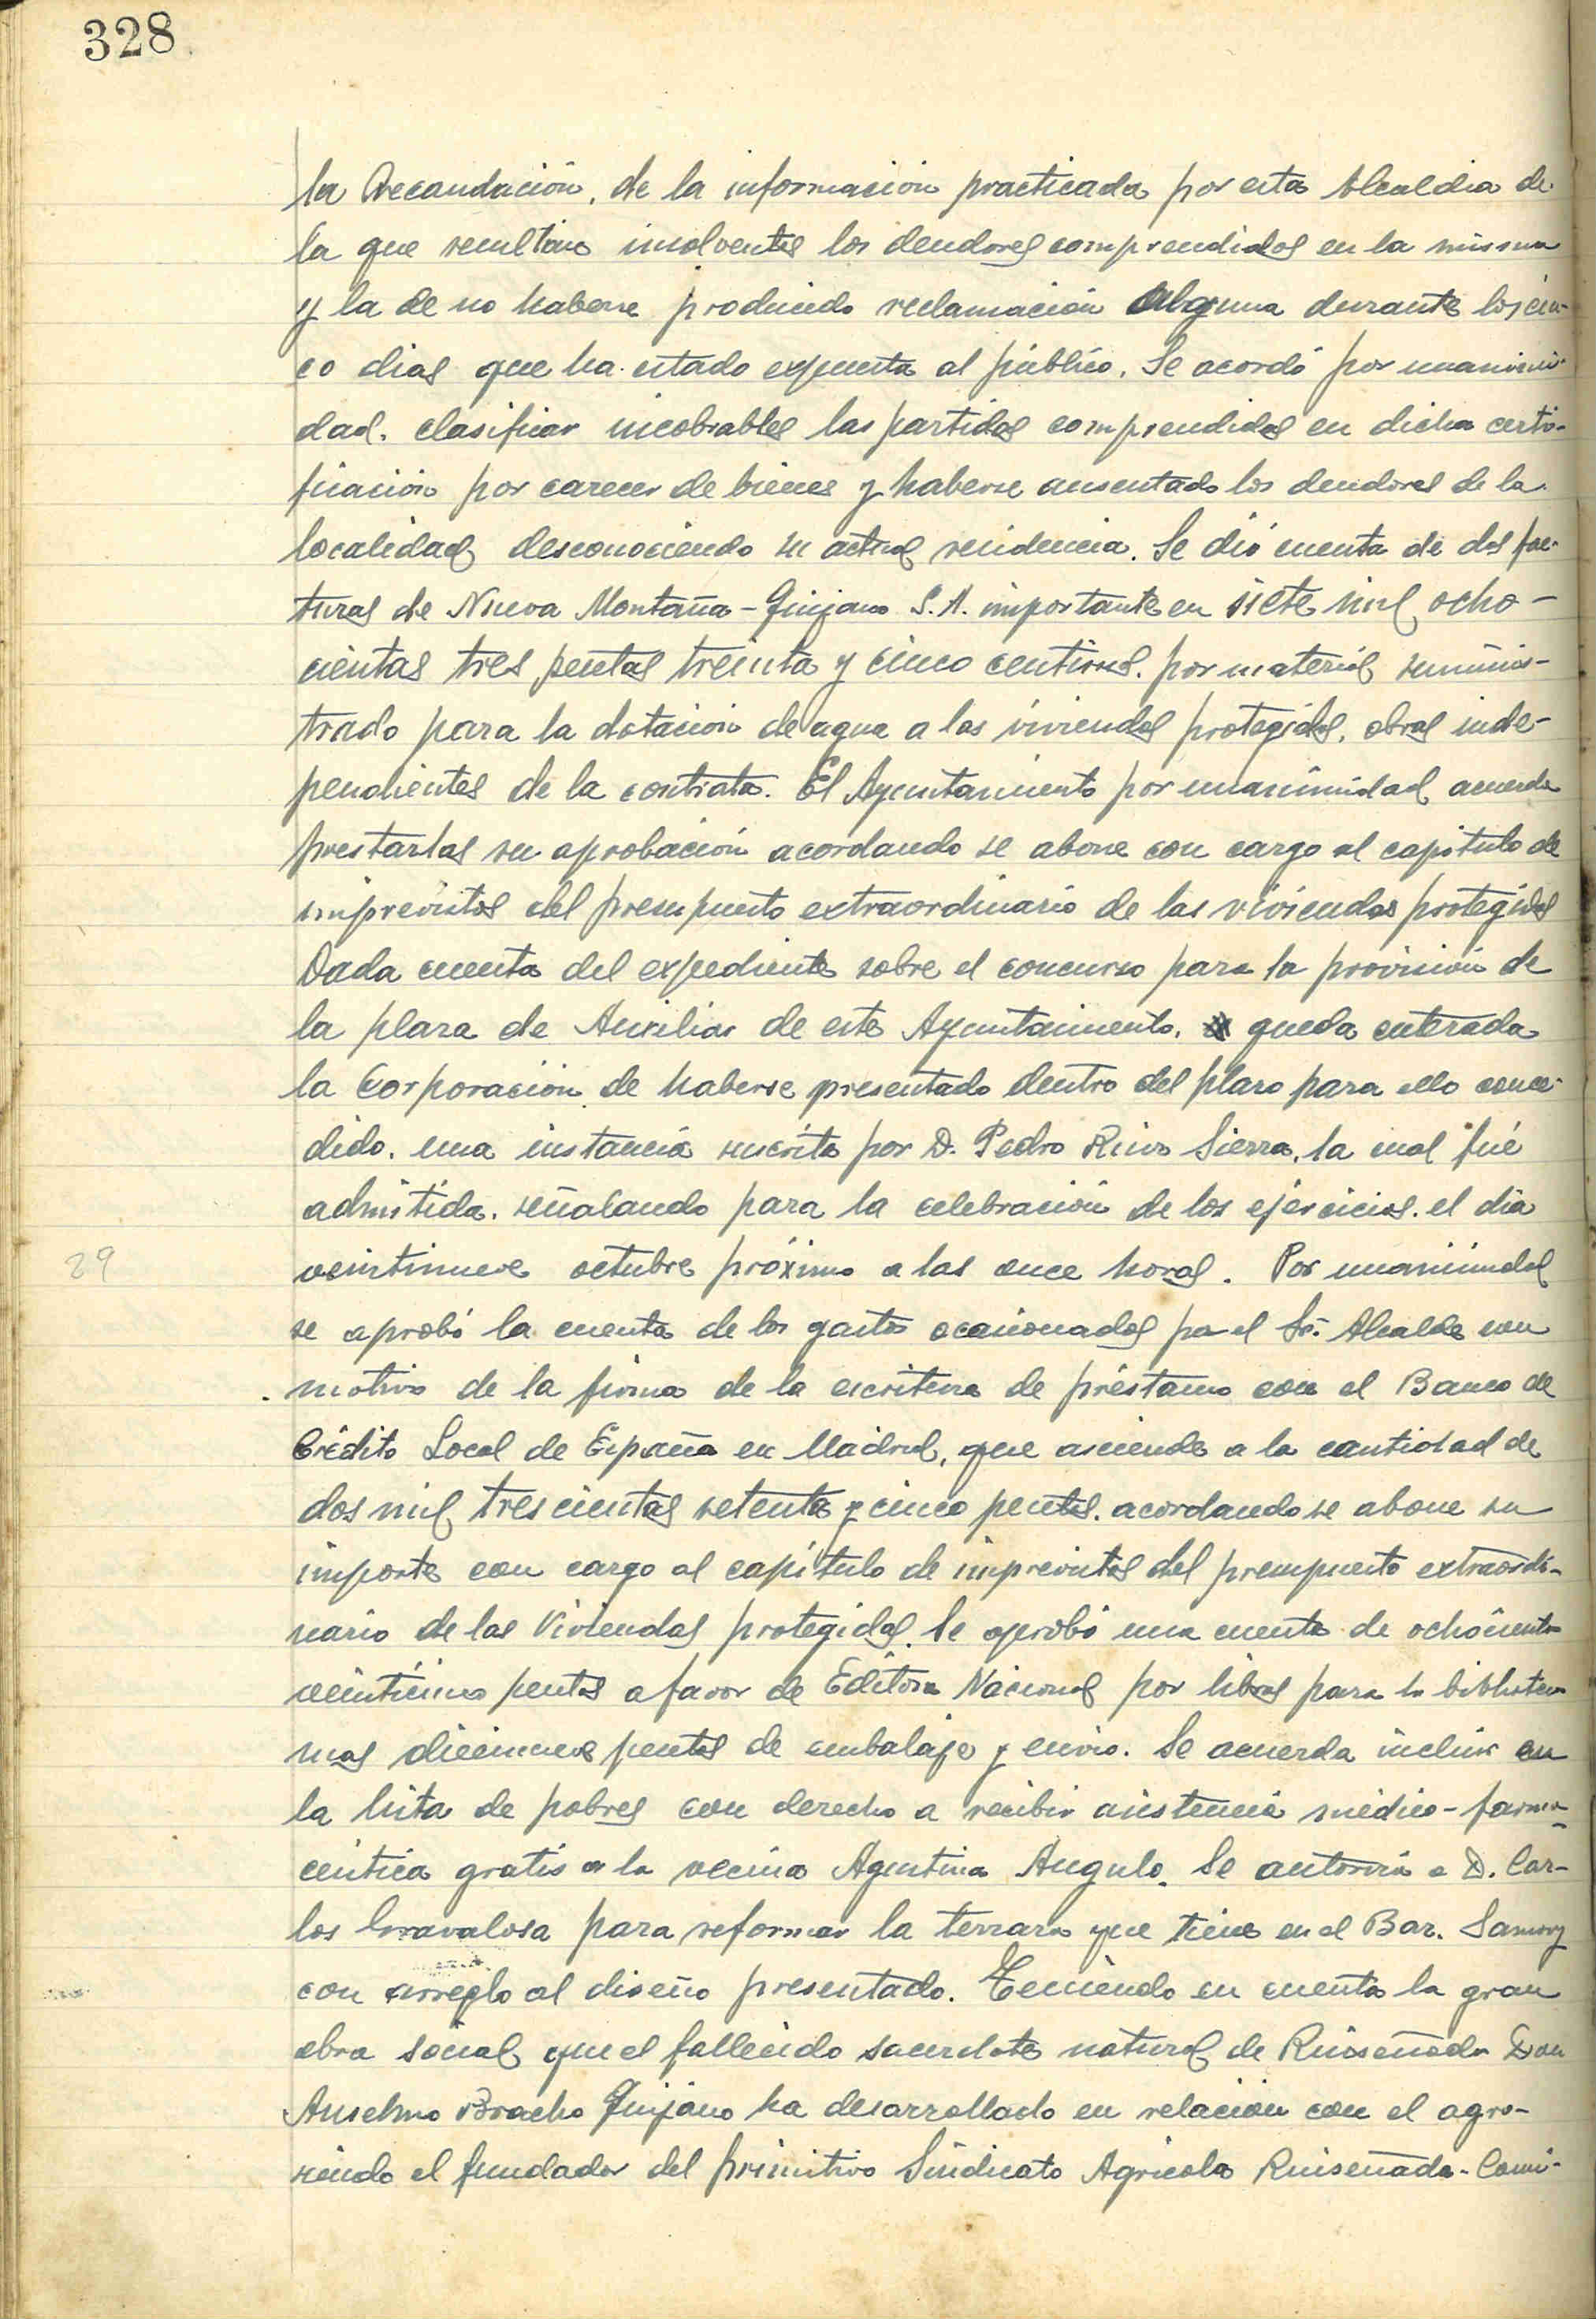 328
la Recaudación, de la información practicada por esta Alcaldia de
la que resultan insolventes los deudores comprendidos en la misma
y la de no haberse producido reclamación alguna durante los cin-
co dias que ha estado expuesta al público. Se acordó por unanimi-
dad. clasificar incobrables las partidas comprendidas en dicha certi-
ficación por carecer de bienes y haberse ausentado los deudores de la
localidad desconociendo su actual residencia. Se dió cuenta de dos fac-
turas de Nueva Montaña-Quijano S.A. importante en siete mil ocho-
cientas tres pesetas treinta y cinco centimos. por material suminis-
trado para la dotacion de agua a las viviendas protegidas, obras inde-
pendientes de la contrata. El Ayuntamiento por unanimidad acuerda
prestarlas su aprobación acordando se abone con cargo al capitulo de
imprevistos del presupuesto extraordinario de las viviendas protegidas
Dada cuenta del expediente sobre el concurso para la provisión de
la plaza de Auxiliar de este Ayuntamiento, queda enterada
la Corporacion de haberse presentado dentro del plazo para ello conce-
dido. una instancia suscrita por D. Pedro Sierra, la cual fué
admitida. señalando para la celebración de los ejercicios. el dia
29
veintinueve octubre próximo a las once horas. Por unanimidad
se aprobó la cuenta de los gastos ocasionados por el Sr. Alcalde con
motivo de la firma de la escritura de préstamo con el Banco de
Crédito Local de España en Madrid, que asciende a la cantidad de
dos mil trescientas setenta y cinco pesetas. acordando se abone su
importe con cargo al capítulo de imprevistos del presupuesto extraordi-
nario de las Viviendas protegidas. Se aprobó una cuenta de ochocientas
veinticinco pesetas a favor de Editora Nacional por libros para la biblioteca
mas diecinueve pesetas de embalaje y envio. Se acuerda incluir en
la lista de pobres con derecho a recibir asistencia médico-farma-
céutica gratis a la vecina Agustina Angulo. Se autoriza a D. Car-
los para reformar la terraza que tiene en el Bar. Samovy
con arreglo al diseño presentado. Teniendo en cuenta la gran
obra social que el fallecido sacerdote natural de Ruiseñada Don
Anselmo Bracho Quijano ha desarrollado en relacion con el agro-
siendo el fundador del primitivo Sindicato Agricola Ruiseñada-Comi-